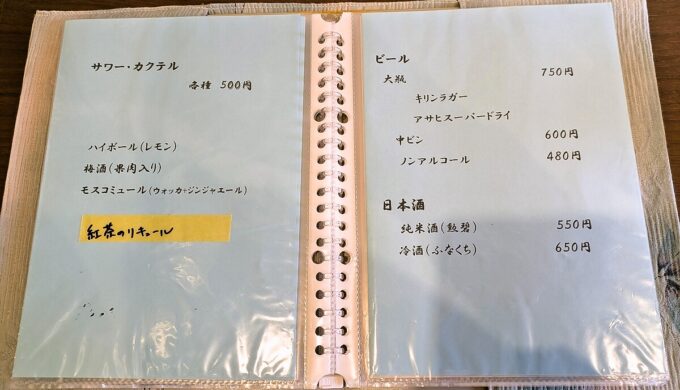 サワー・カクテル
各種 500円
ハイボール(レモン)
梅酒(果肉入り)
モスコミュール(ウォッカ+ジンジャエール)
紅茶のリキュール
ビール
大瓶 750円
キリンラガー
アサヒスーパードライ
中ビン 600円
ノンアルコール 480円
日本酒
純米酒 550円
冷酒(ふなくち) 650円